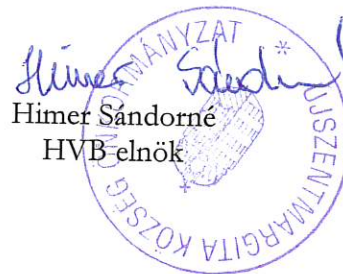 Himer Sándorné
Himer Sándorné
HVB elnök
ÚJSZENTMARGITA KÖZSÉG ÖNKORMÁNYZAT *